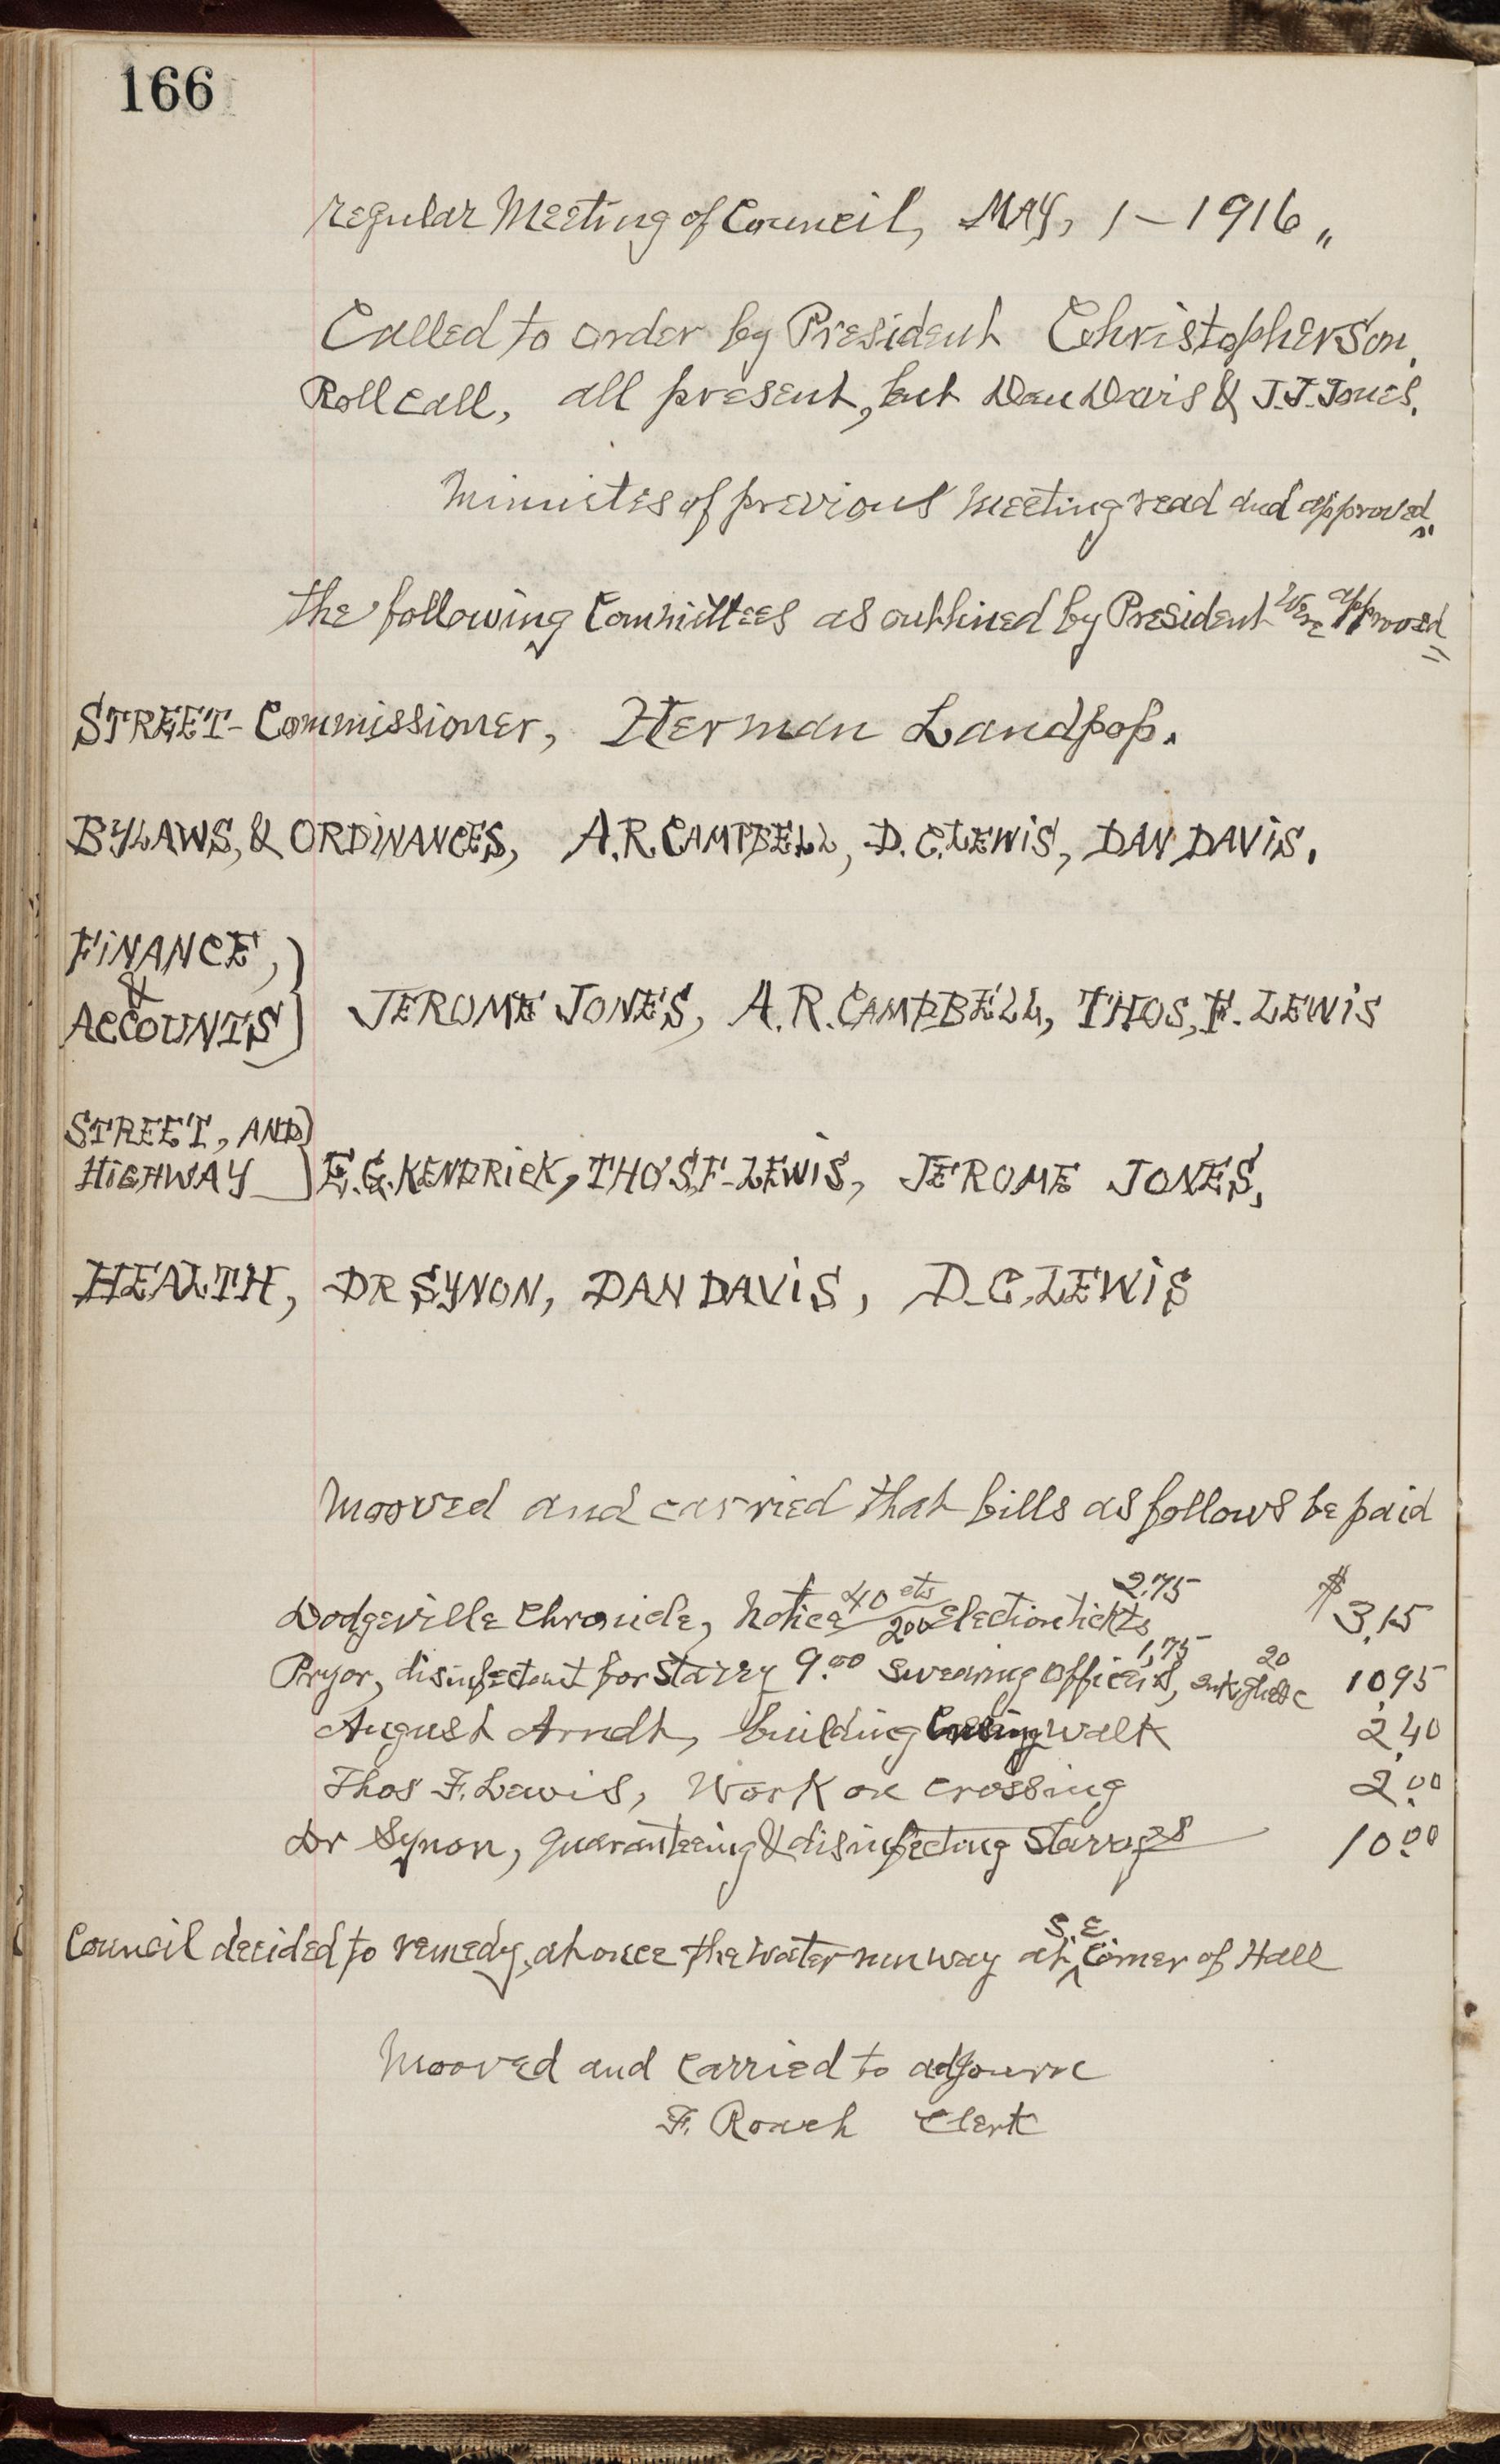 166
regular Meeting of Council, MAY, 1 - 1916 "
Called to order by President Christopherson.
Roll call, all present, but Dan Davis & J.J. Jones.
Minnites of previous meeting read and approved"
the following Committees as outlined by President Were approved
STREET- Commissioner, Herman Landpop.
BYLAWS, & ORDINANCES, A.R. CAMPBELL, D.C. LEWIS, DAN DAVIS.
FINANCE,
&
ACCOUNTS
JEROME JONES, A.R. CAMPBELL, THOS, F. LEWIS
STREET, AND
HIGHWAY
E.G. KENDRICK, THO'S, F- LEWIS, JEROME JONES,
HEALTH, DR SYNON, DAN DAVIS, D.C. LEWIS
Mooved and carried that bills as follows be paid
Dodgeville Chronicle, Notice 40 cts 200 Election tickts 2.75 $ 3,15
Pryor, disinfectant for Starry 9.00 Swearing Officers, 1,75 20 10,95
August Arndt, building walk 2,40
Thos F. Lewis, Work on crossing 2.00
Dr Synon, quaranteeing & disinfecting Starrys 10.00
Council decided to remedy, at once the water runway at S.E Corner of Hall
Mooved and carried to adjourn
F. Roach Clerk